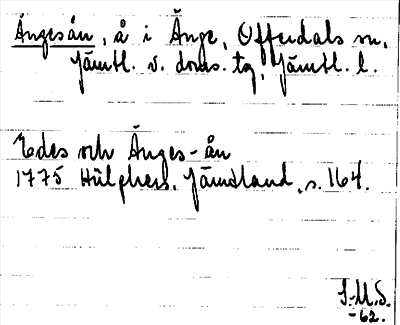 Ängesån, å i Änge, Offerdals sn,
Jämtl. v. doms. tg, Jämtl. l.
Edes och Änges-ån
1775 Hülphers, Jämtland, s. 164.
S.M.S.
-62.